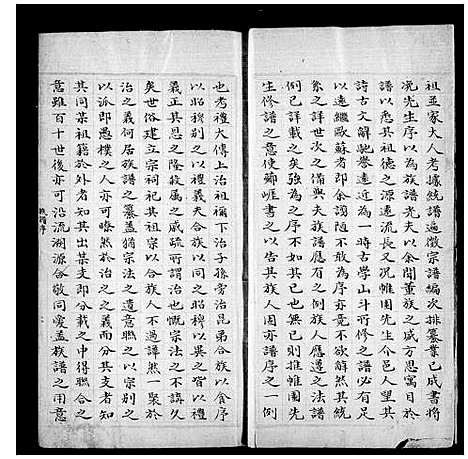 祖並家大人考據統譜遍徵宗譜編次排纂業已成書將
况先生序以為族譜光夫以余聞董族之盛方思寓目於
譜以悉其祖德之源遠流長又况帷園先生介邑人望其
詩古文解馳譽遠近為一時古學山斗所修之譜必有足
以遠繼歐蘇者即余謭陋不敢為序亦竟不欲解然其統
系之詳之備與夫族譜應有之例族人應遵之法譜
例已詳載之矣強為之序不如其已也無已則推帷園先
生修譜之意使鄉崖書之以告其族人因亦譜序之一例
也考禮大傳上治祖禰下治子孫旁治昆弟合族以食序
以昭穆別之以禮義夫合族以同之昭穆以異之皆以禮
義正其恩之隆殺屬之戚疏所謂治也慨宗法之不講久
矣世俗建立宗祠祀其祖宗以合族人不過譁然一聚於
治之義何居族譜之纂蓋猶宗法之遺意也以宗別之
以派即愚樸之人亦可瞭然於治之義而分其支者知
其同某祖籍於外者知其出某支即分載之中得聯合之
意雖百十世後亦可沿流溯源合敬同愛蓋族譜之用意